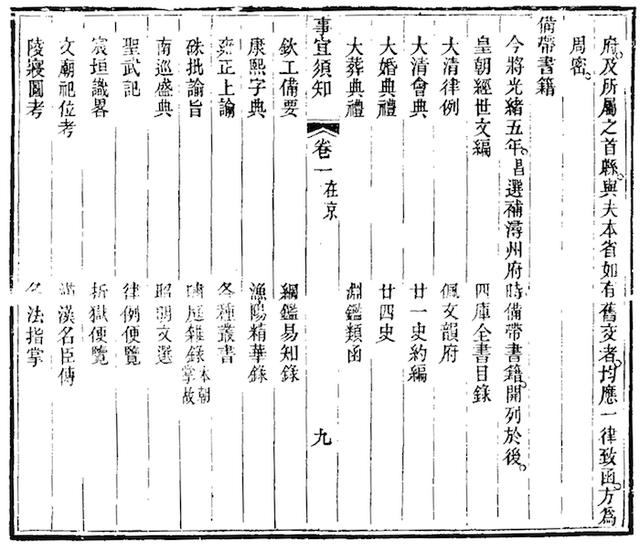 府。及所屬之首縣。與夫本省如有舊交者。均應一律致函。方爲
周密。
備帶書籍
今將光緒五年。昌選補潯州府時備帶書籍。開列於後。
皇朝經世文編　四庫全書目錄
大清律例　佩文韻府
大清會典　廿一史約編
大婚典禮　廿四史
大葬典禮　淵鑑類函
事宜須知　卷一在京　九
欽工備要　綱鑑易知錄
康熙字典　漁陽精華錄
雍正上諭　各種叢書
硃批諭旨　嘯庭雜錄本朝掌故
南巡盛典　昭朝文選
聖武記　律例便覽
宸垣識畧　折獄便覽
文廟祀位考　滿漢名臣傳
陵寢圖考　名法指掌